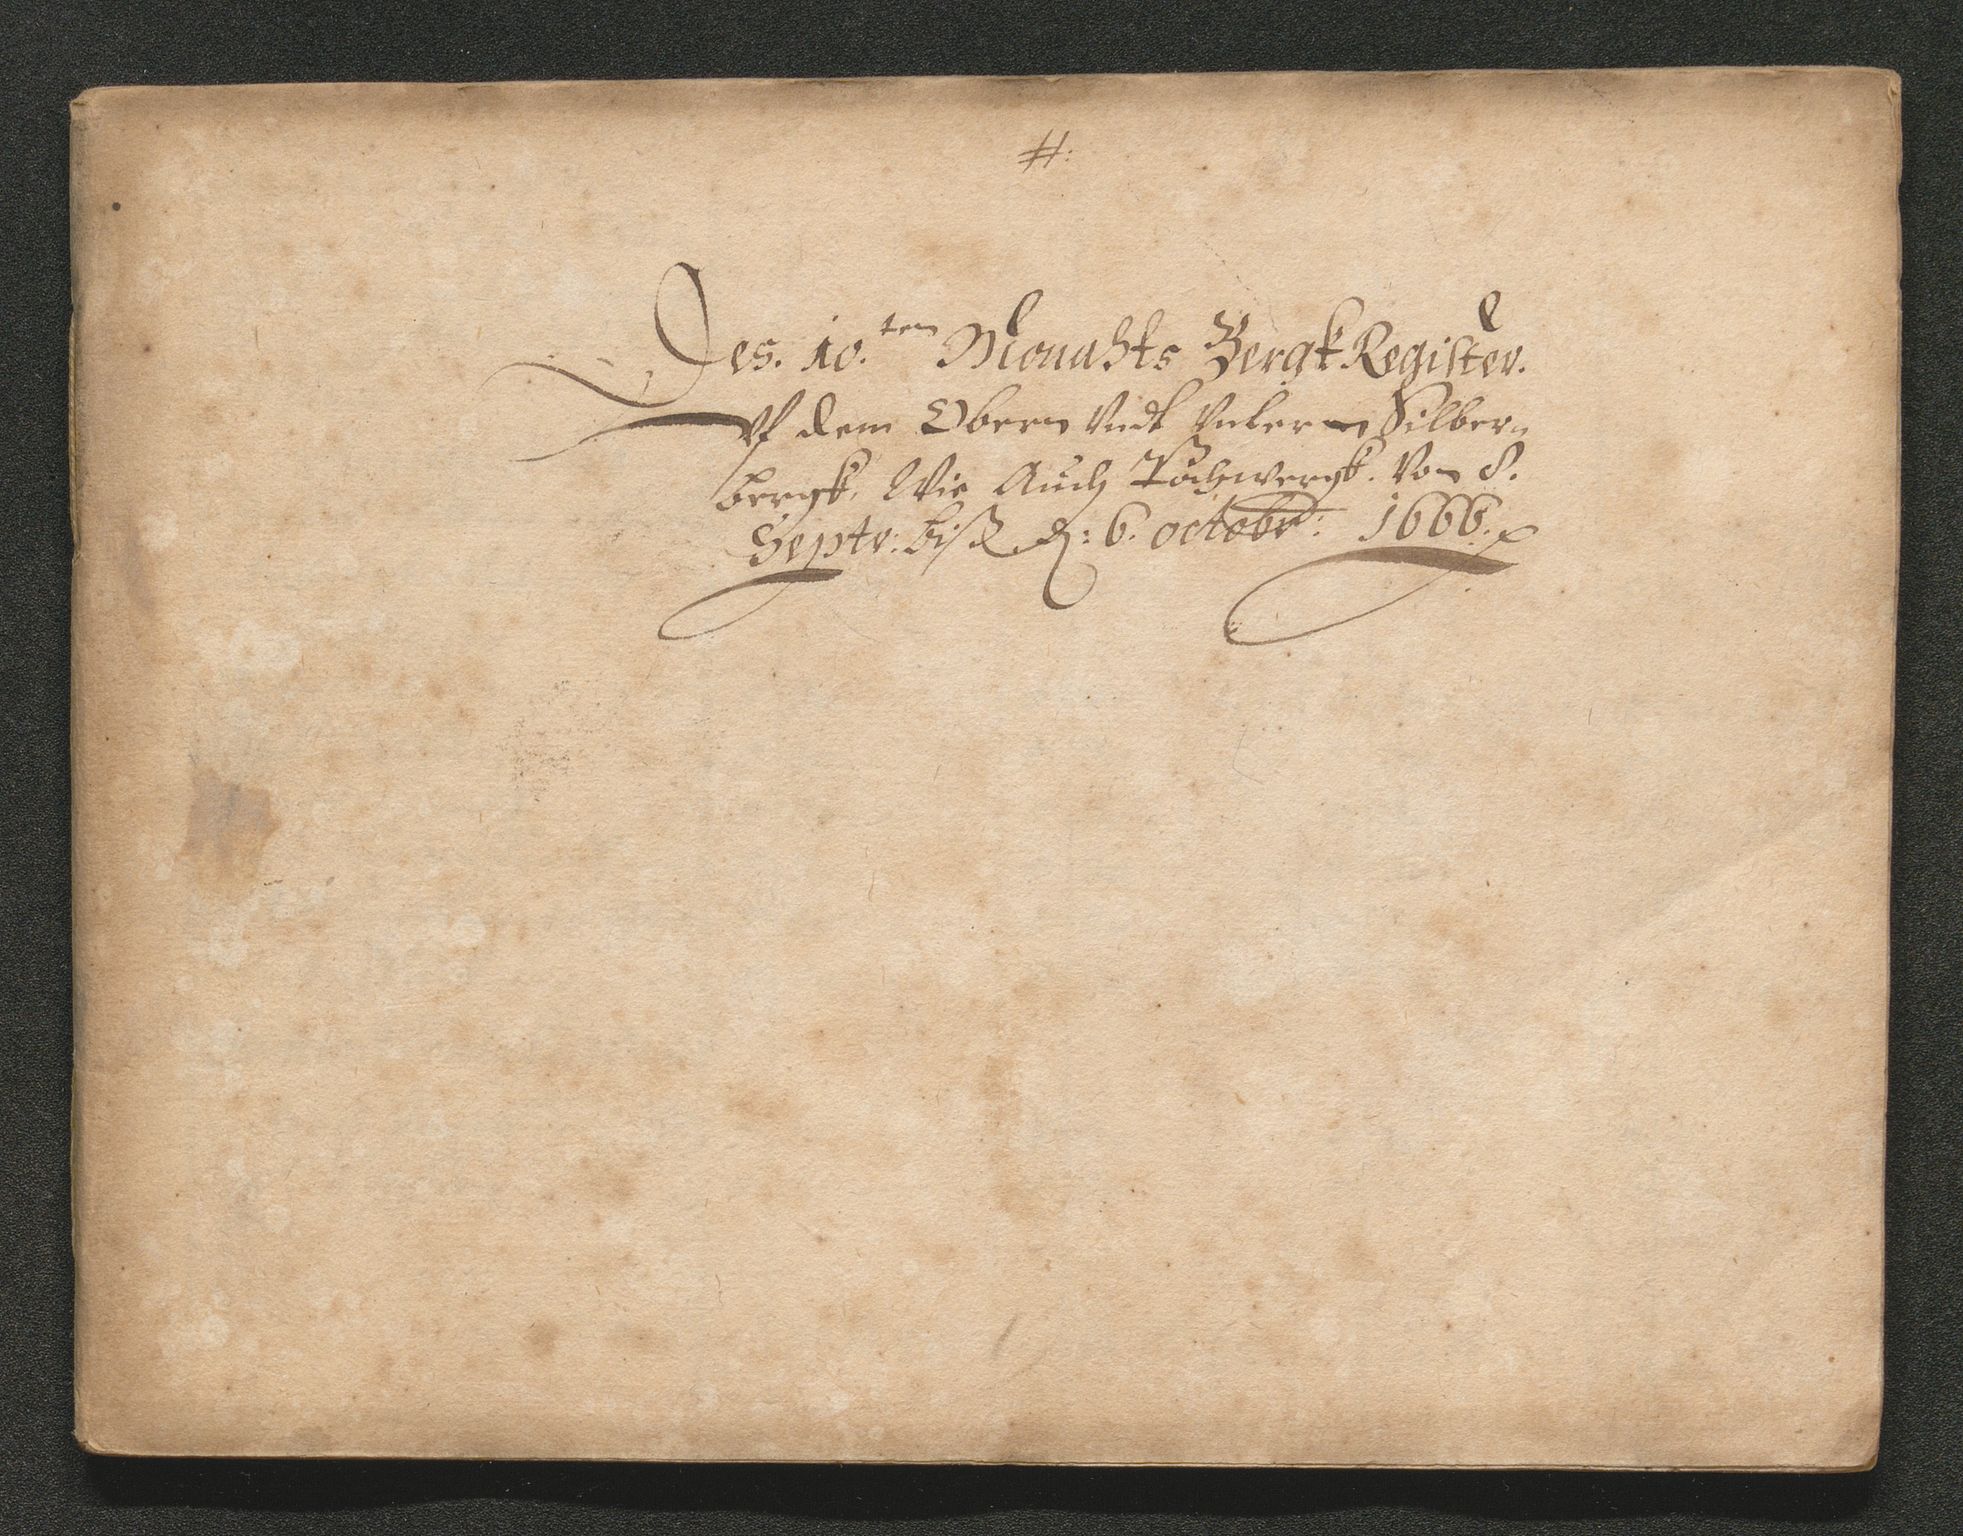 #:
Des. 10.ten Monahts Bergk Register.
Vf dem Obern Vndt Vntern Silber-
bergk, Wie Auch Pochwergk. Von 8.
Septr: biß d: 6. octobr: 1666.